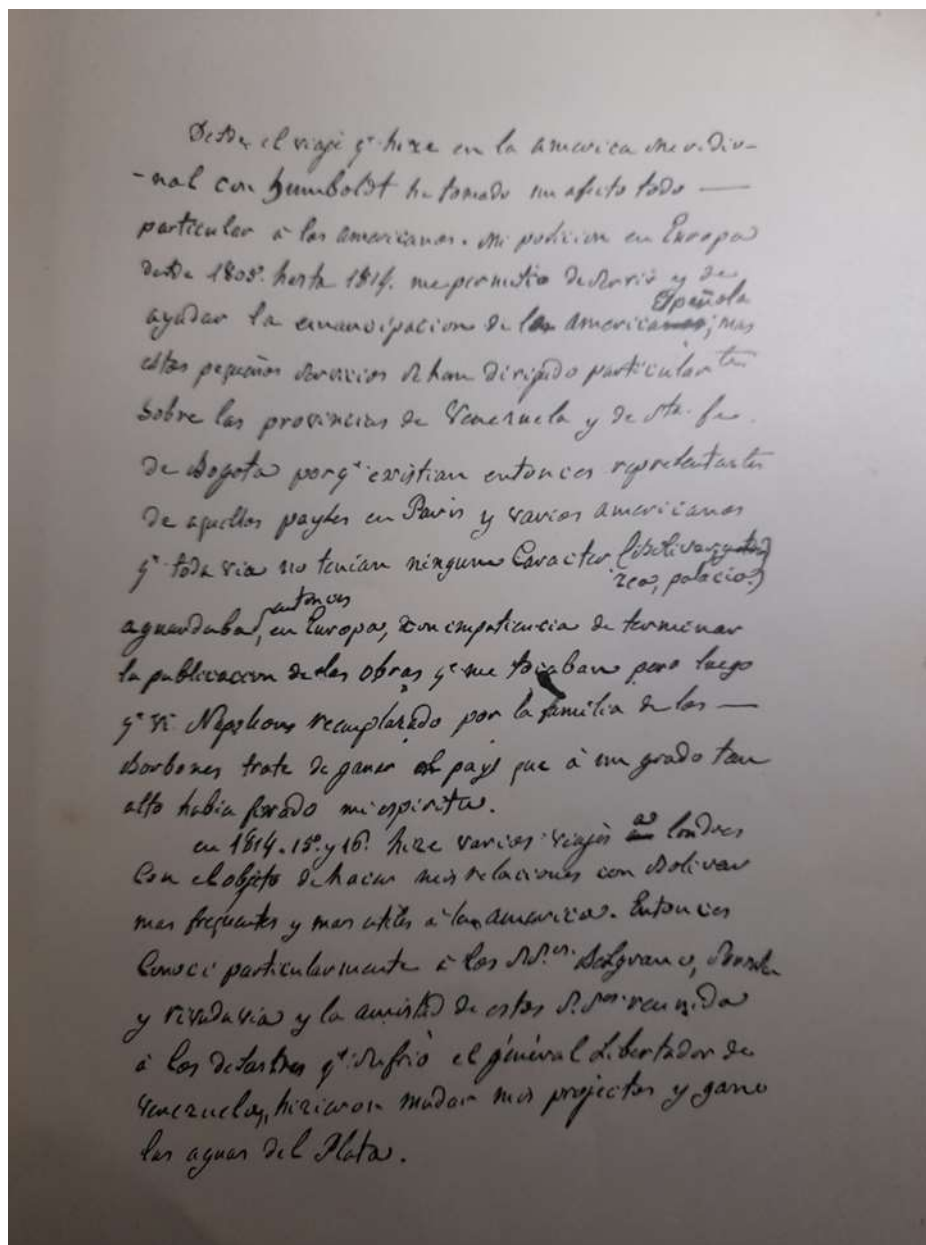 Desde el viaje qe hize en la america meridio-
-nal con humboldt he tomado un afecto todo —
particular à los americanos. Mi posicion en Europa
desde 1805. hasta 1814. me permitio de servir y de
Española
ayudar la emancipacion de la america; mas
estos pequeños servicios se han dirigido particularte
sobre las provincias de Venezuela y de Sta. fe
de Bogota porqe existian entonces representantes
de aquellos payses en Paris y varios americanos
qe toda via no tenian ninguno Caracter (Bolivar,
zea, palacio.)
entonces
aguardaba, en Europa, con impatiencia de terminar
la publicacion de las obras qe me tocaban pero luego
qe vi Napoleon remplazado por la familia de los —
Borbones trate de ganar el pays que à un grado tan
alto habia mi espiritu.
en 1814. 15. y 16. hize varios viajes a londres
Con el objeto de hacer mis relaciones con Bolivar
mas frequentes y mas utiles à la america. Entonces
Conoci particularmente à los SS.es Belgrano,
y rivadavia y la amistad de estos S.Ses reunida
à los desastres qe sufriò el géneral Libertador de
Venezuela, hizieron mudar mis projectos y gane
las aguas del Plata.